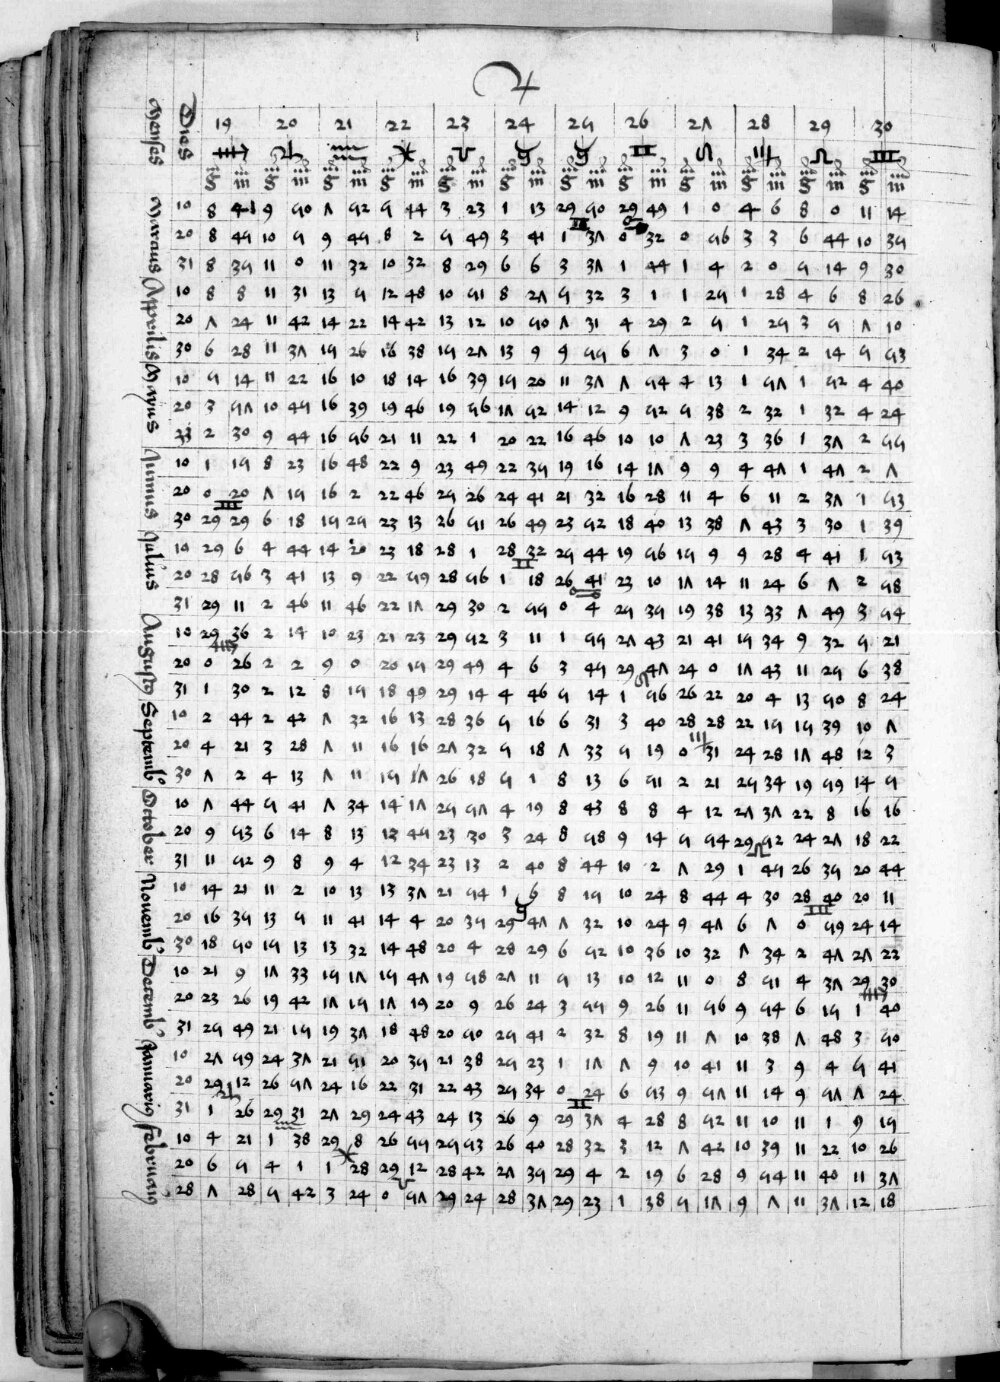 ♃
Menses Dies 19 20 21 22 23 24 25 26 27 28 29 30
♐ ♑ ♒ ♓ ♈ ♉ ♉ ♊ ♌ ♍ ♎ ♏
g m g m g m g m g m g m g m g m g m g m g m g m
Marcius 10 8 41 9 50 7 52 5 44 3 23 1 13 29 50 29 49 1 0 4 6 8 0 11 14
♊ ♋
20 8 45 10 5 9 45 8 2 5 49 3 41 1 37 0 32 0 56 3 3 6 44 10 35
31 8 35 11 0 11 32 10 32 8 29 6 6 3 37 1 44 1 4 2 0 5 14 9 30
Apprilis 10 8 8 11 31 13 5 12 48 10 51 8 27 5 32 3 1 1 25 1 28 4 6 8 26
20 7 24 11 42 14 22 14 42 13 12 10 50 7 31 4 29 2 5 1 25 3 5 7 10
30 6 28 11 37 15 26 16 38 15 27 13 9 9 55 6 7 3 0 1 34 2 14 5 53
Mayus 10 5 14 11 22 16 10 18 14 16 39 15 20 11 37 7 54 4 13 1 57 1 52 4 40
20 3 57 10 45 16 39 19 46 19 56 17 52 14 12 9 52 5 38 2 32 1 32 4 24
33 2 30 9 44 16 56 21 11 22 1 20 22 16 46 10 10 7 23 3 36 1 37 2 55
Junius 10 1 15 8 23 16 48 22 9 23 49 22 35 19 16 14 17 9 9 4 47 1 47 2 7
20 0 20 7 15 16 2 22 46 25 26 24 41 21 32 16 28 11 4 6 11 2 37 1 53
♏
30 29 29 6 18 15 25 23 13 26 51 26 49 23 52 18 40 13 38 7 43 3 30 1 35
Julius 10 29 6 4 44 14 20 23 18 28 1 28 32 25 44 19 56 15 9 9 28 4 41 1 53
♊
20 28 56 3 41 13 9 22 55 28 56 1 18 26 41 23 10 17 14 11 24 6 7 2 58
♋
31 29 11 2 46 11 46 22 17 29 30 2 55 0 4 25 35 19 38 13 33 7 49 3 54
Augusto 10 29 36 2 14 10 23 21 23 29 52 3 11 1 55 27 43 21 41 15 34 9 32 5 21
♐
20 0 26 2 2 9 0 20 15 29 45 4 6 3 45 29 47 24 0 17 43 11 25 6 38
♌
31 1 30 2 12 8 15 18 49 29 14 4 46 5 14 1 56 26 22 20 4 13 50 8 24
Septemb 10 2 44 2 42 7 32 16 13 28 36 5 16 6 31 3 40 28 28 22 15 15 39 10 7
♍
20 4 21 3 28 7 11 16 16 27 32 5 18 7 33 5 19 0 31 24 28 17 48 12 3
30 7 2 4 13 7 11 15 17 26 18 5 1 8 13 6 51 2 21 25 34 19 59 14 5
October 10 7 44 5 41 7 34 14 17 25 57 4 19 8 43 8 8 4 12 27 37 22 8 16 16
20 9 53 6 14 8 13 13 45 23 30 3 24 8 58 9 14 5 54 29 52 24 27 18 22
♎
31 11 52 9 8 9 4 12 34 23 13 2 40 8 44 10 2 7 29 1 45 26 35 20 44
Novemb 10 14 21 11 2 10 13 13 37 21 54 1 6 8 15 10 24 8 44 4 30 28 40 20 11
♉ ♏
20 16 35 13 5 11 41 14 4 20 35 29 47 7 32 10 24 9 47 6 7 0 55 24 14
30 18 50 15 13 13 32 14 48 20 4 28 29 6 52 10 36 10 32 7 34 2 47 27 22
Decemb 10 21 9 17 33 15 17 15 47 19 58 27 11 5 13 10 12 11 0 8 51 4 37 29 30
♐
20 23 26 19 42 17 15 17 19 20 9 26 24 3 55 9 26 11 56 9 54 6 15 1 40
31 25 49 21 15 19 37 18 48 20 50 25 41 2 32 8 19 11 7 10 38 7 48 3 50
Januario 10 27 59 24 37 21 51 20 35 21 38 25 23 1 17 7 9 10 41 11 3 9 4 5 41
20 29 12 26 57 24 16 22 31 22 43 25 34 0 24 6 53 9 57 11 14 9 57 7 24
♑ ♊
31 1 26 29 31 27 29 24 43 24 13 26 9 29 37 4 28 8 52 11 10 11 1 9 15
♒
Februario 10 4 21 1 38 29 8 26 55 25 53 26 40 28 32 3 12 7 42 10 39 11 22 10 26
♓
20 6 5 4 1 1 28 29 12 28 42 27 35 29 4 2 19 6 28 9 54 11 40 11 37
♈
28 7 28 5 42 3 24 0 57 29 24 28 37 29 23 1 38 5 17 9 7 11 37 12 18